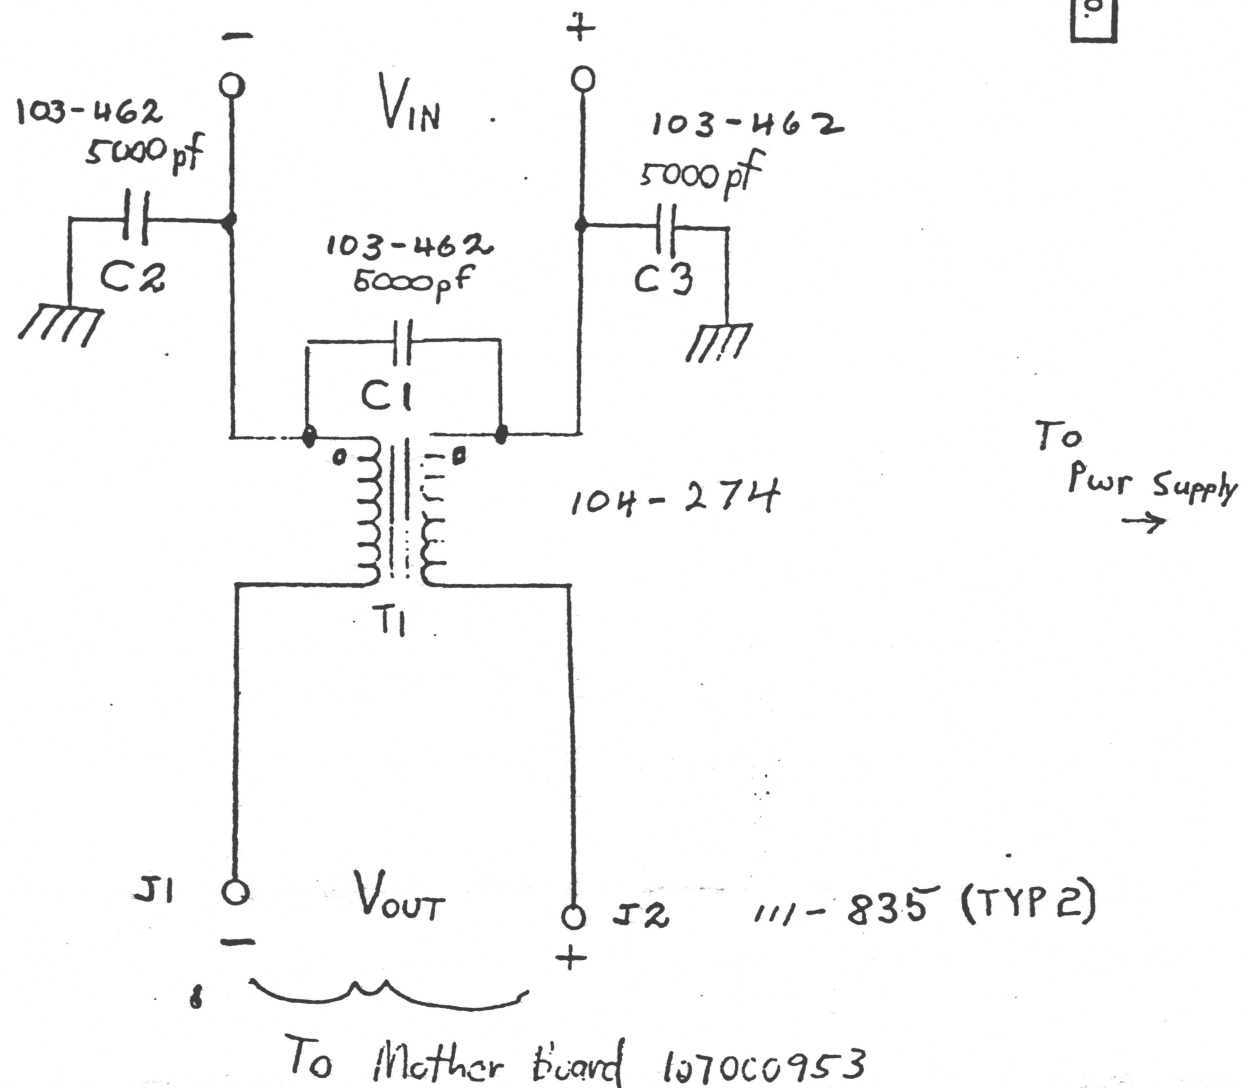 o.
- +
VIN
103-462
5000pf
103-462
5000pf
103-462
5000pf
C2
C3
C1
To
Pwr Supply
→
104-274
T1
J1
VOUT
J2
111-835 (TYP2)
- +
To Mother Board 107000953